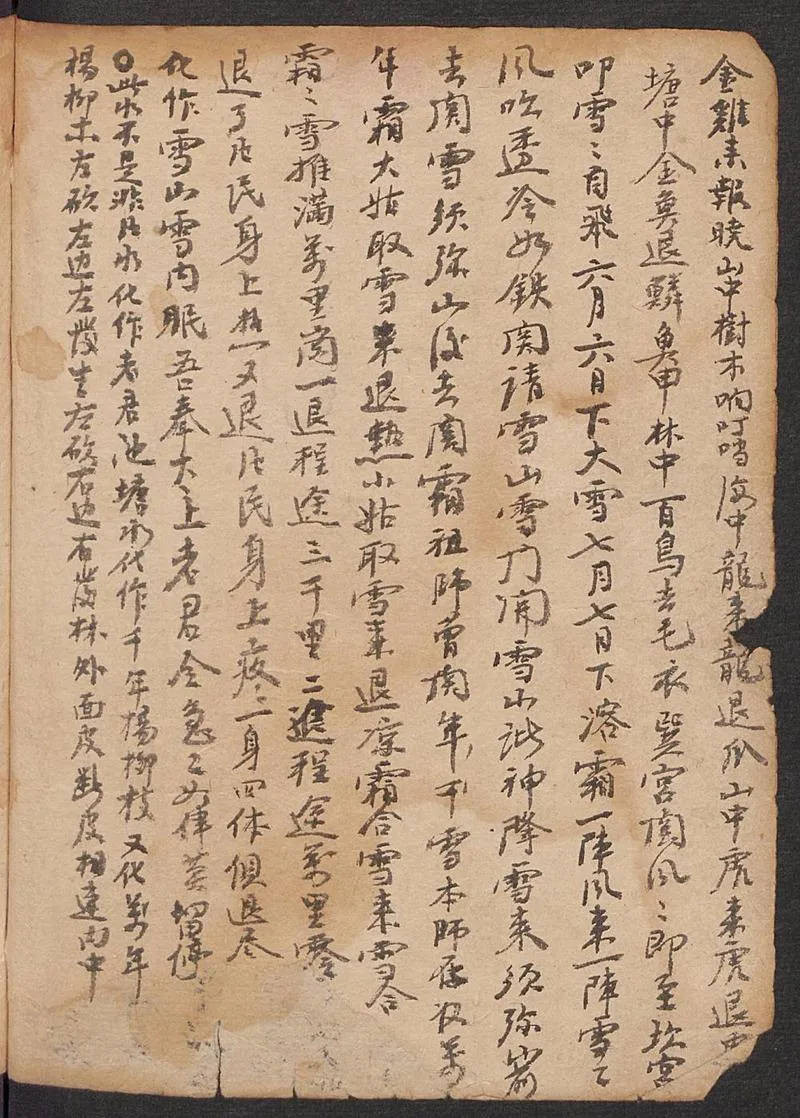 金雞來報曉山中樹木响叮噹海中龍來龍退爪山中虎來虎退
塘中金魚退鱗魚甲林中百鳥去毛衣巽宮闰风〻即至坎宮
叩雪〻自飛六月六日下大雪七月七日下溶霜一陣风來一陣雪〻
风吹透冷如鉄闰請雪山雪门闰雪山此神降雪來须弥前
去闰雪须弥山后去闰霜祖師曾闰年千雪本師存收萬
年霜大姑取雪來退熱小姑取雪來退凉霜合雪來雪合
霜〻雪推满萬里崗一退程途三千里二進程途萬里零
退了凡民身上熱又退凡民身上疼一身四体俱退尽
化作雪山雪内眠吾奉太上老君令急〻如律莫畱停
〇此水不是非凡水化作老君池塘水化作千年楊柳枝又化萬年
楊柳木左砍左边左發生右砍右边右發林外面皮断皮相連内中